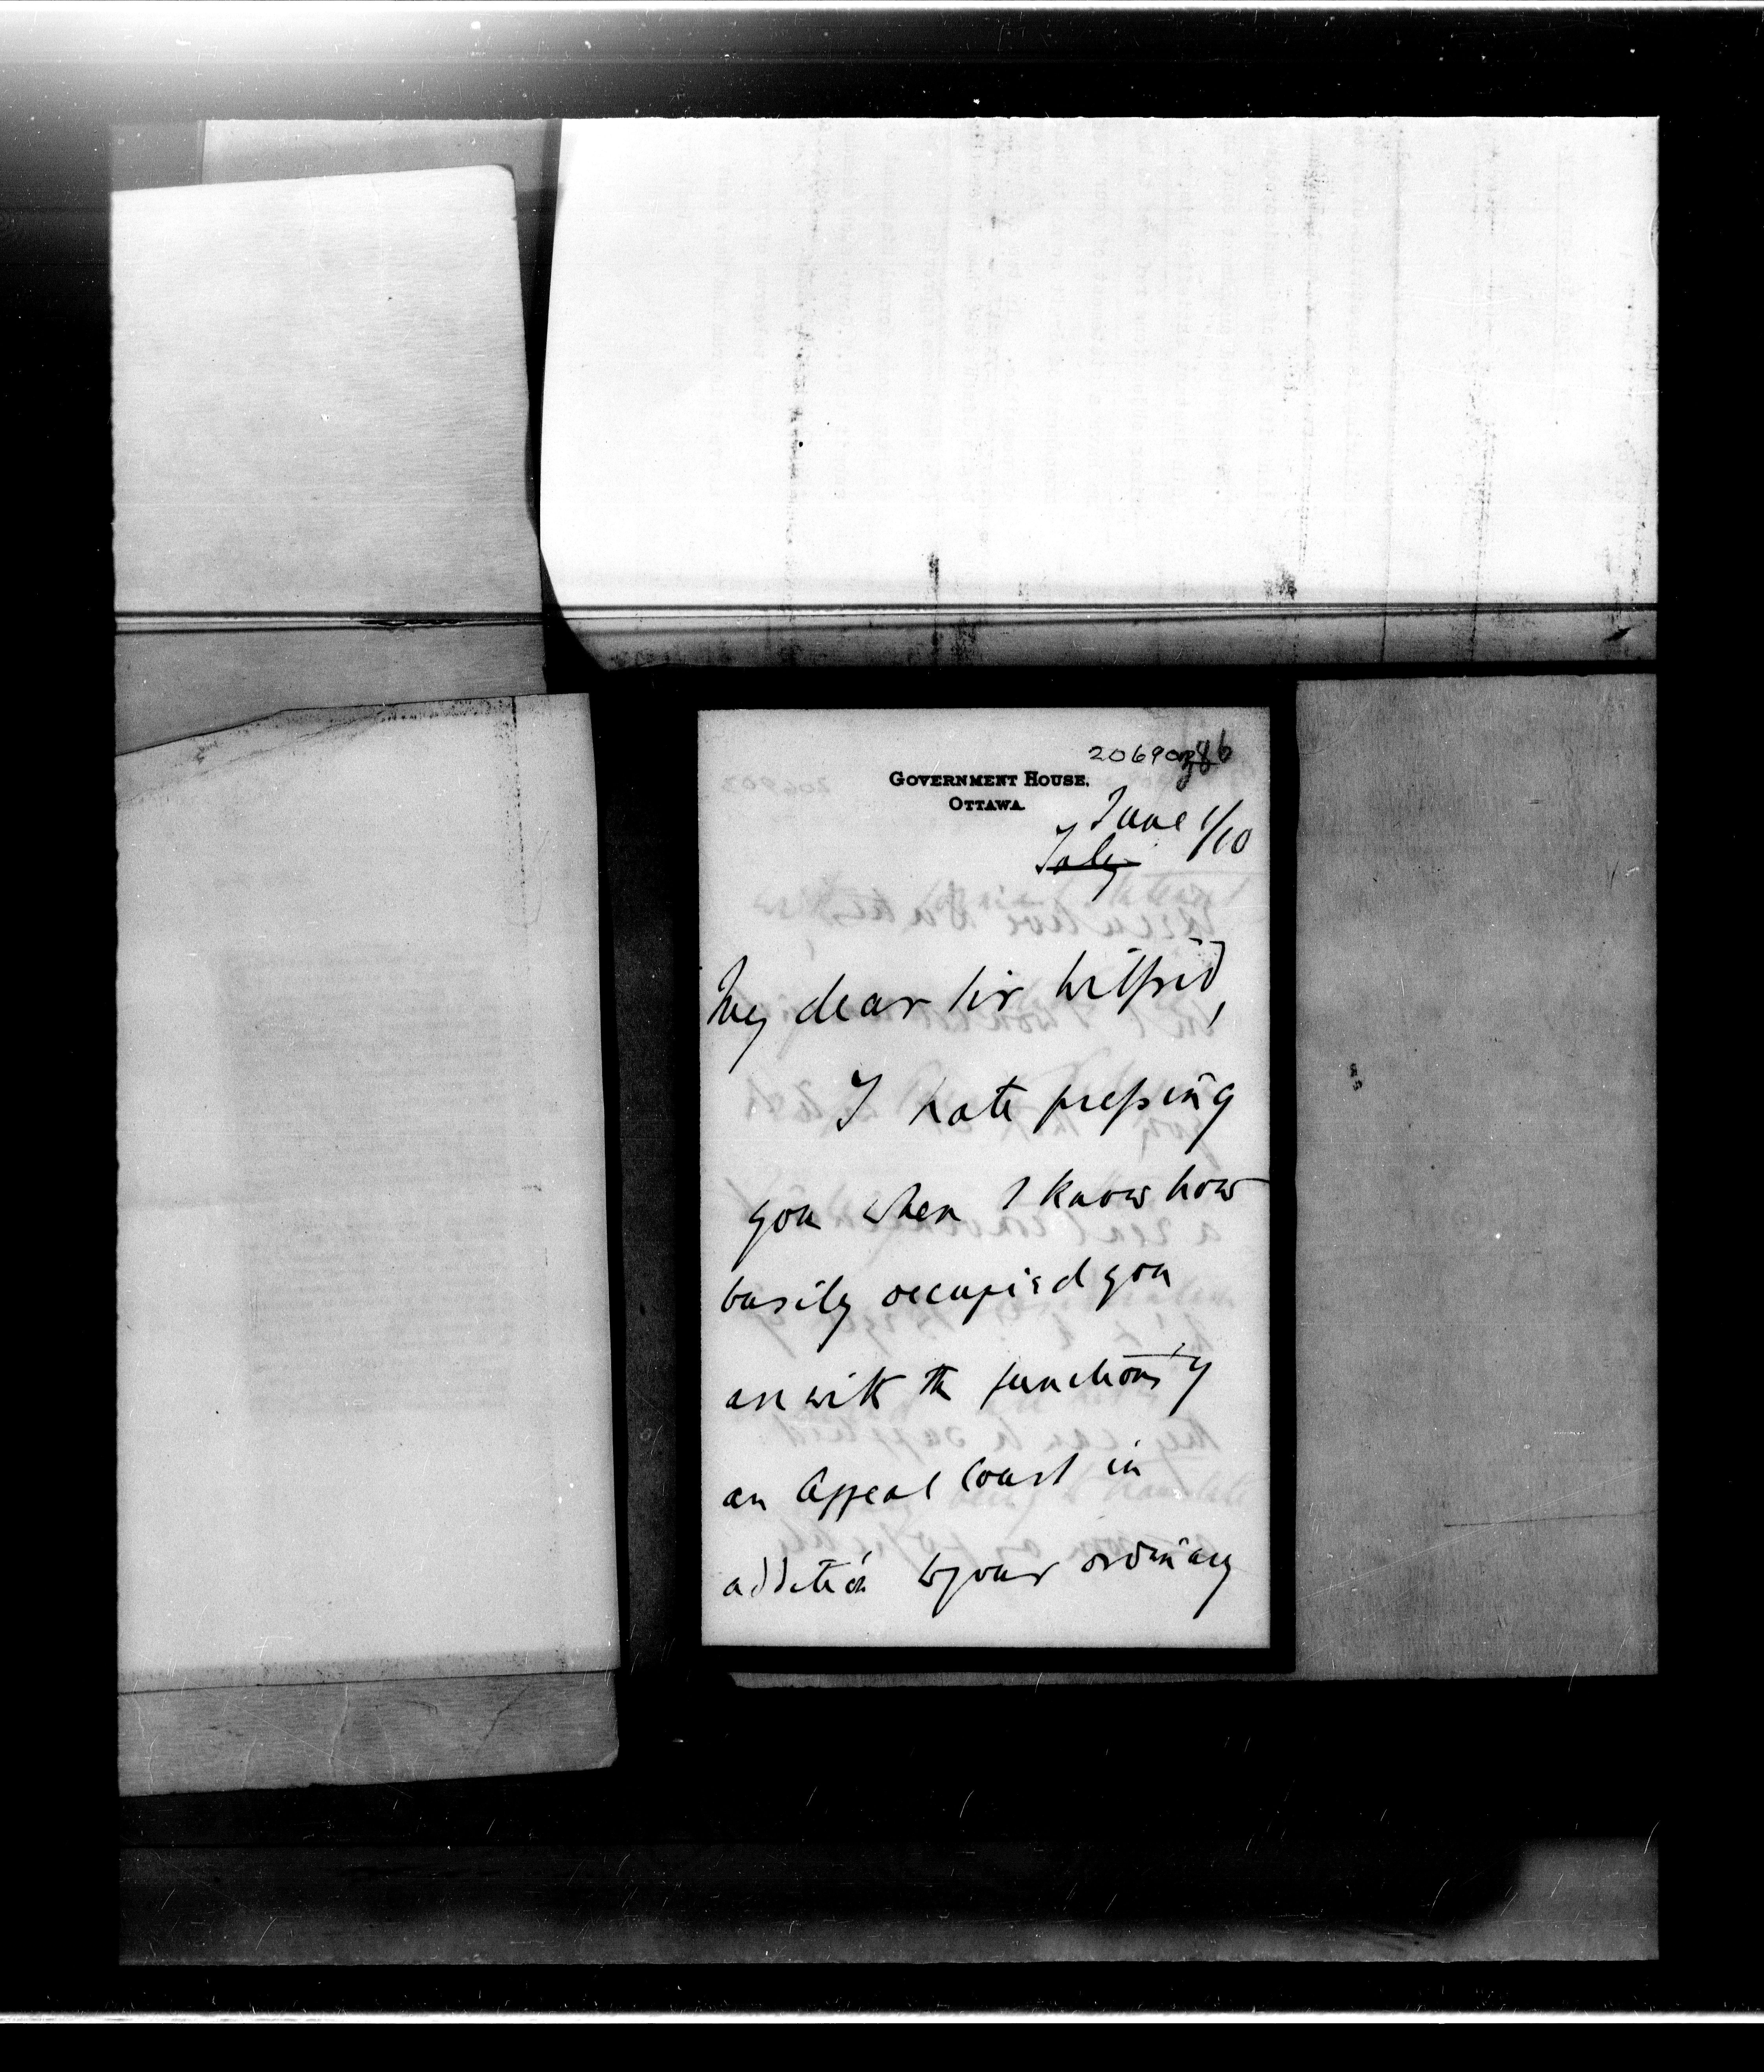 206902
386
GOVERNMENT HOUSE,
OTTAWA.
June 1/10
July
My dear Sir Wilfrid,
I hate pressing
you when I know how
busily occupied you
are with the functions of
an Appeal Court in
addition to your ordinary